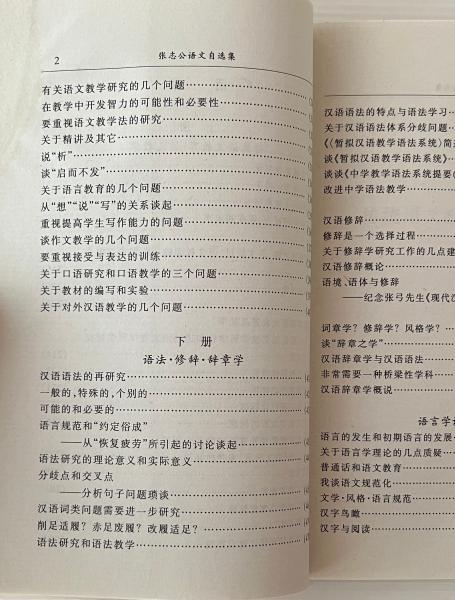 2 张志公语文自选集
有关语文教学研究的几个问题
在教学中开发智力的可能性和必要性
要重视语文教学法的研究
关于精讲及其它
说“析”
谈“启而不发”
关于语言教育的几个问题
从“想”“说”“写”的关系谈起
重视提高学生写作能力的问题
谈作文教学的几个问题
要重视接受与表达的训练
关于口语研究和口语教学的三个问题
关于教材的编写和实验
关于对外汉语教学的几个问题
下 册
语法·修辞·辞章学
汉语语法的再研究
一般的,特殊的,个别的
可能的和必要的
语言规范和“约定俗成”
——从“恢复疲劳”所引起的讨论谈起
语法研究的理论意义和实际意义
分歧点和交叉点
——分析句子问题琐谈
汉语词类问题需要进一步研究
削足适履?赤足废履?改履适足?
语法研究和语法教学
汉语语法的特点与语法学习
关于汉语语法体系分歧问题
《〈暂拟汉语教学语法系统〉简
谈《暂拟汉语教学语法系统》
谈谈《中学教学语法系统提要(
改进中学语法教学
汉语修辞
修辞是一个选择过程
关于修辞学研究工作的几点建
汉语修辞概论
语境、语体与修辞
——纪念张弓先生《现代汉
词章学?修辞学?风格学?
谈“辞章之学”
汉语辞章学与汉语语法
非常需要一种桥梁性学科
汉语辞章学概说
语言学
语言的发生和初期语言的发展
关于语言学理论的几点质疑
普通话和语文教育
我谈语文规范化
文学·风格·语言规范
汉字鸟瞰
汉字与阅读